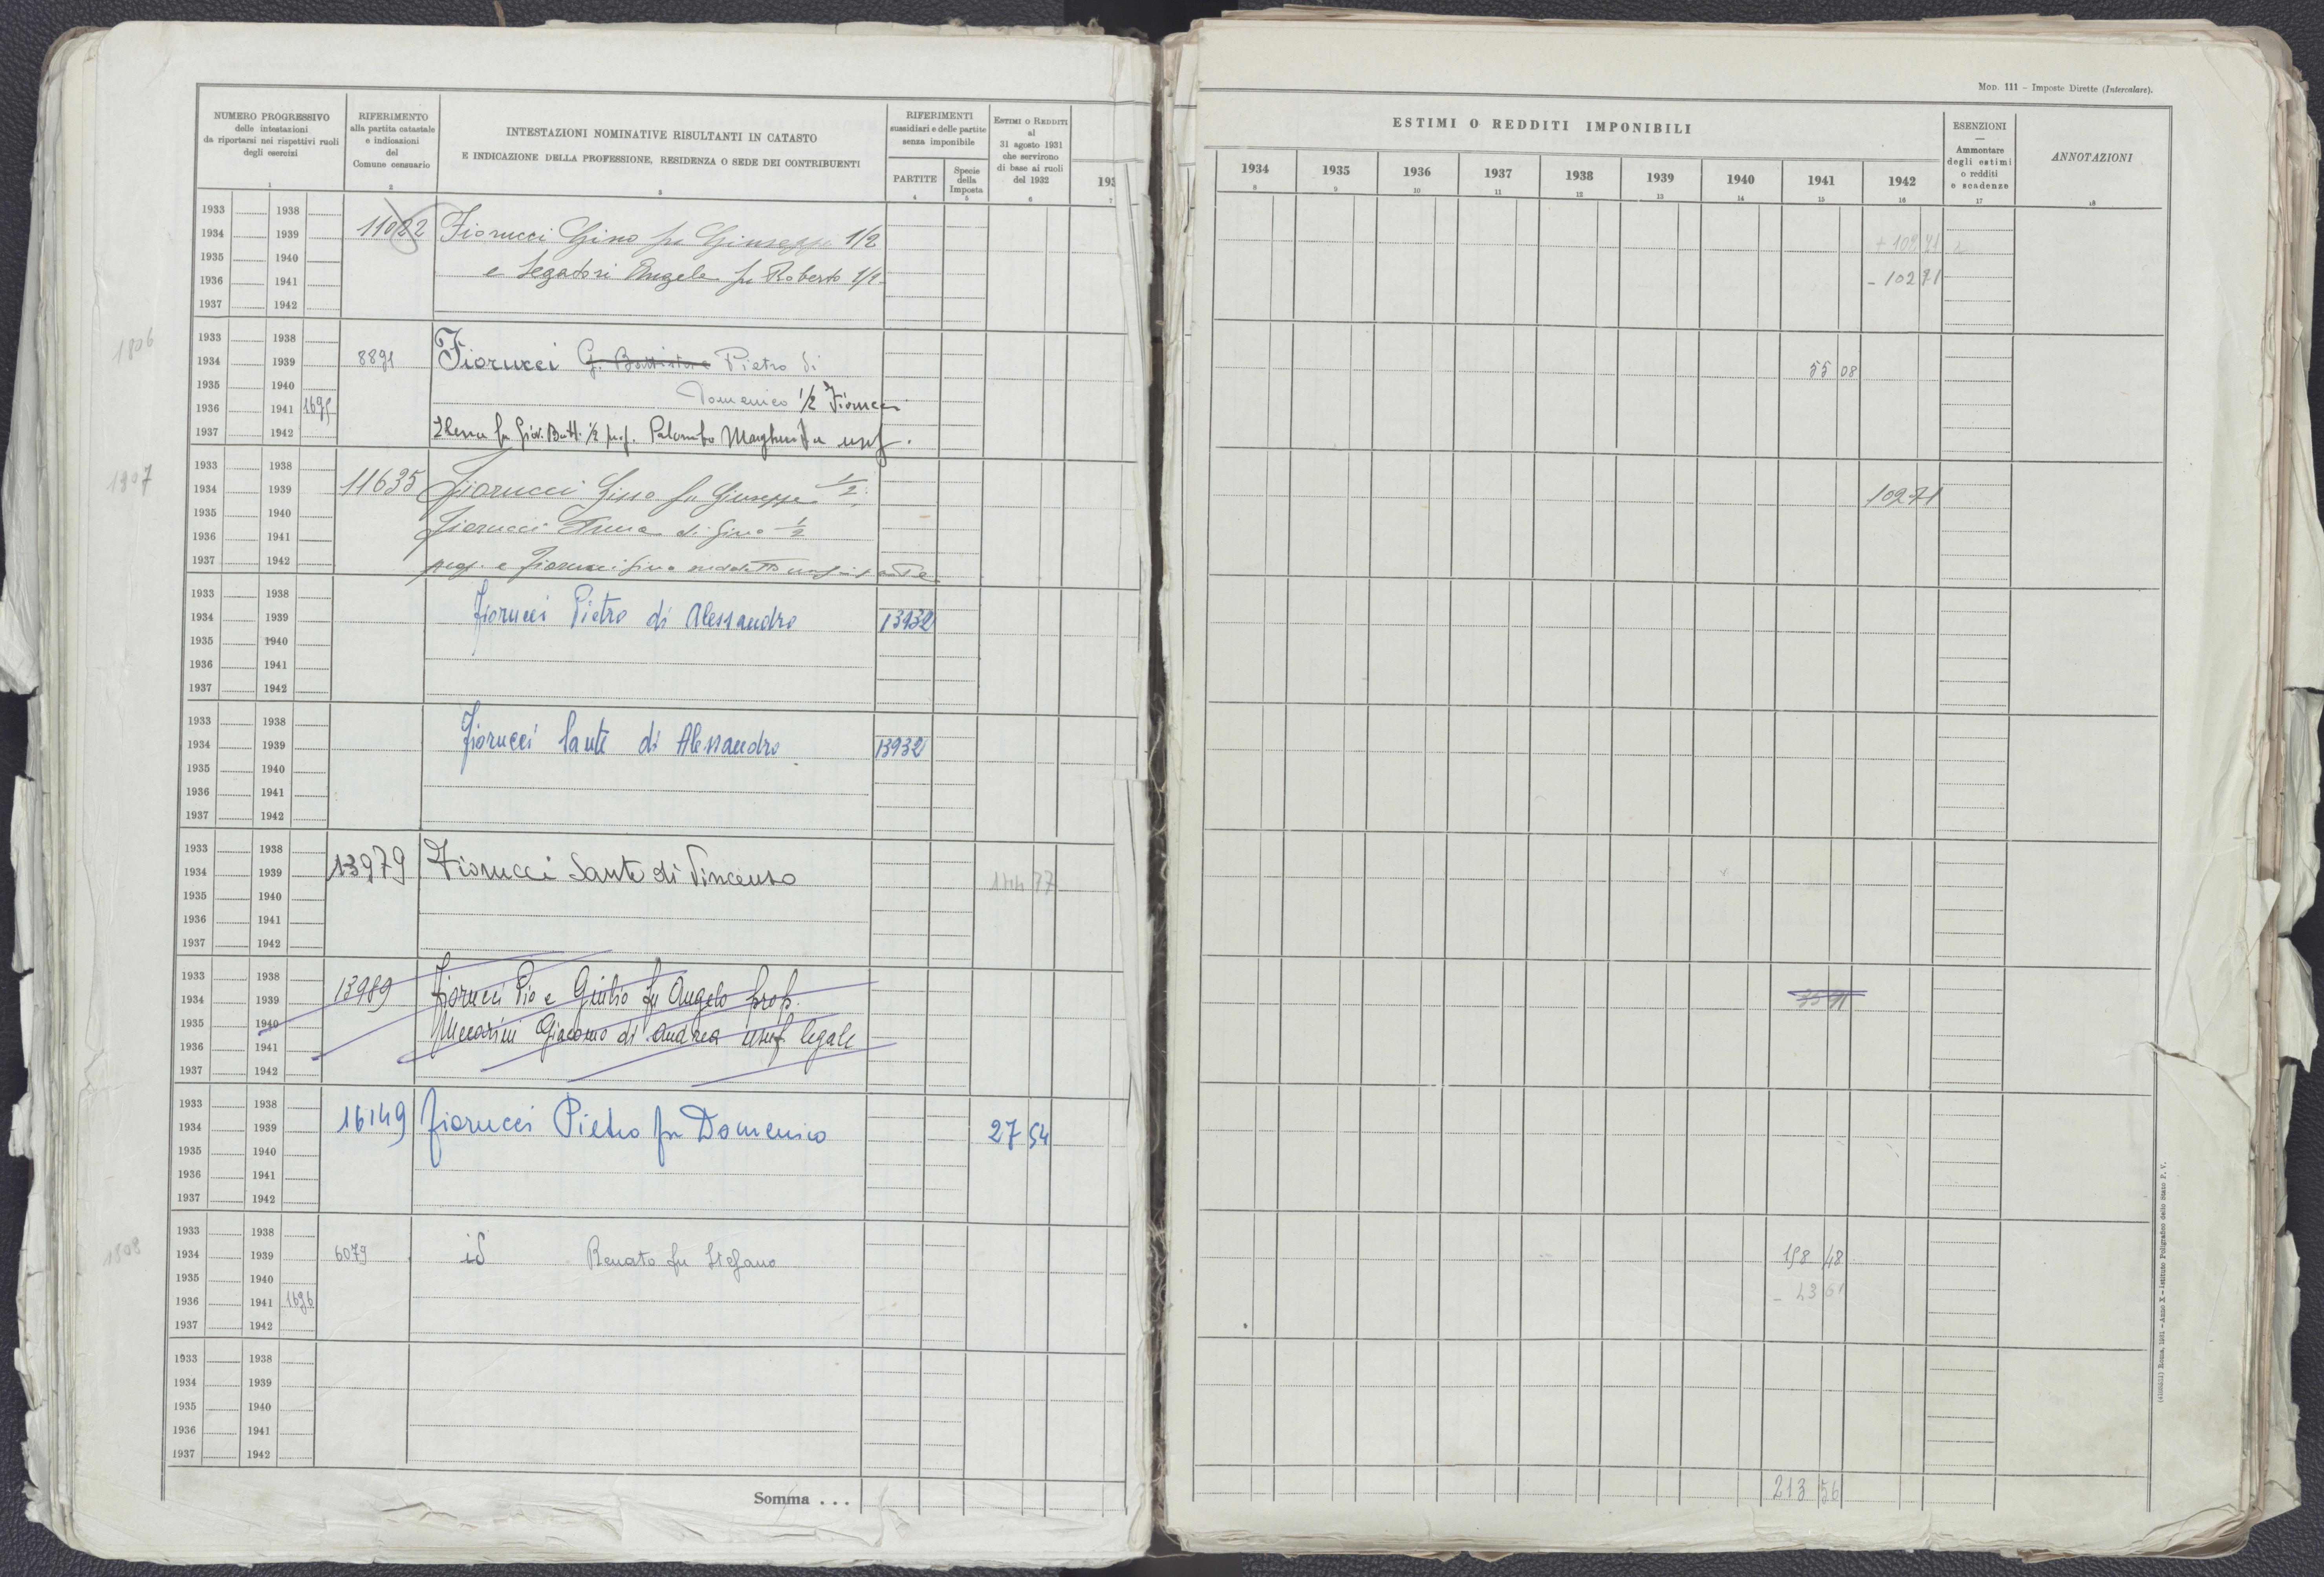 Mod. 111 – Imposte Dirette (Intercalare).
NUMERO PROGRESSIVO
delle intestazioni
da riportarsi nei rispettivi ruoli
degli esercizi
1
RIFERIMENTO
alla partita catastale
e indicazioni
del
Comune censuario
2
INTESTAZIONI NOMINATIVE RISULTANTI IN CATASTO
E INDICAZIONE DELLA PROFESSIONE, RESIDENZA O SEDE DEI CONTRIBUENTI
3
RIFERIMENTI
sussidiari e delle partite
senza imponibile
PARTITE
4
Specie
della
Imposta
5
ESTIMI O REDDITI
al
31 agosto 1931
che servirono
di base ai ruoli
del 1932
6
193
7
ESTIMI O REDDITI IMPONIBILI
1934 1935 1936 1937 1938 1939 1940 1941 1942
8 9 10 11 12 13 14 15 16
ESENZIONI
—
Ammontare
degli estimi
o redditi
e scadenze
17
ANNOTAZIONI
18
1933 1938
1934 1939 11022 Fiorucci Gino fu Giuseppe 1/2 + 102 71
1935 1940 e Segatori Angela fu Roberto 1/2 - 102 71
1936 1941
1937 1942
1806
1933 1938
1934 1939 8891 Fiorucci G. Battista Pietro di 55 08
1935 1940 Domenico 1/2 Fiorucci
1936 1941 1695
1937 1942 Elena fu Giov. Batt. 1/2 prop. Palombo Margherita usuf.
1807
1933 1938
1934 1939 11635 Fiorucci Gino fu Giuseppe 1/2 102 71
1935 1940 Fiorucci Anna di Gino 1/2
1936 1941
1937 1942 prop. e Fiorucci Gino suddetto
1933 1938
1934 1939 Fiorucci Pietro di Alessandro 13932
1935 1940
1936 1941
1937 1942
1933 1938
1934 1939 Fiorucci Sante di Alessandro 13932
1935 1940
1936 1941
1937 1942
1933 1938
1934 1939 13979 Fiorucci Sante di Vincenzo 144 77
1935 1940
1936 1941
1937 1942
1933 1938
1934 1939 13989 Fiorucci Pio e Giulio fu Angelo prop. 35 91
1935 1940 Mecarini Giacomo di Andrea usuf legale
1936 1941
1937 1942
1933 1938
1934 1939 16149 Fiorucci Pietro fu Domenico 27 54
1935 1940
1936 1941
1937 1942
1808
1933 1938
1934 1939 6079 id Renato fu Stefano 158 48
1935 1940
1936 1941 1696 - 43 61
1937 1942
1933 1938
1934 1939
1935 1940
1936 1941
1937 1942
Somma . . . 213 56
Roma, 1931 – Anno X – Istituto Poligrafico dello Stato P. V.